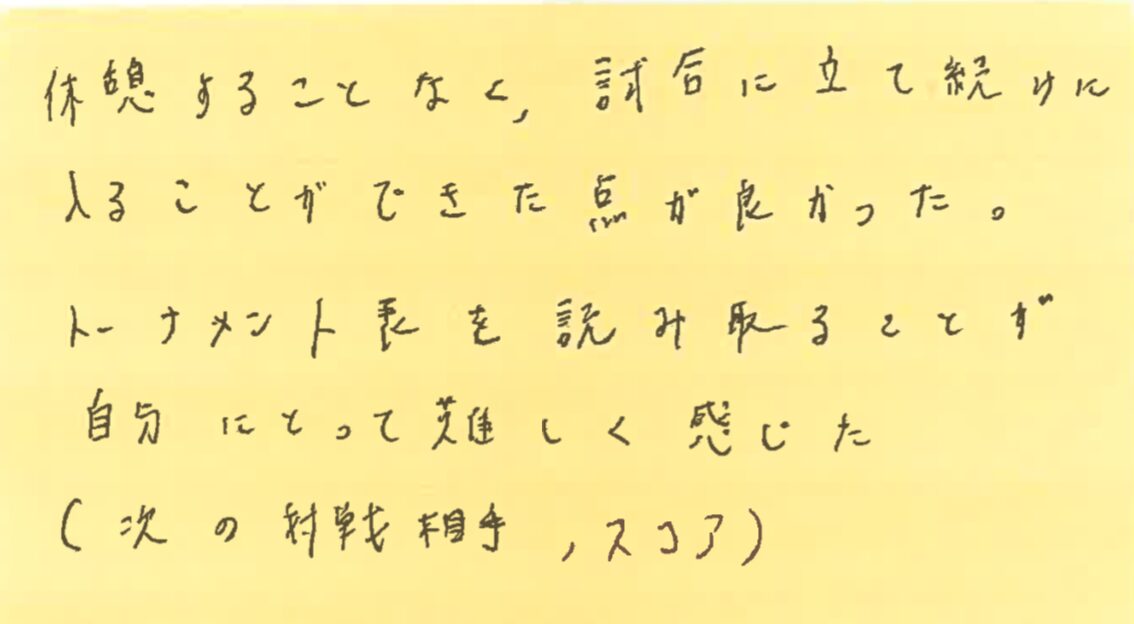 休憩することなく,試合に立て続けに
入ることができた点が良かった。
トーナメント表を読み取ることが
自分にとって難しく感じた
(次の対戦相手,スコア)